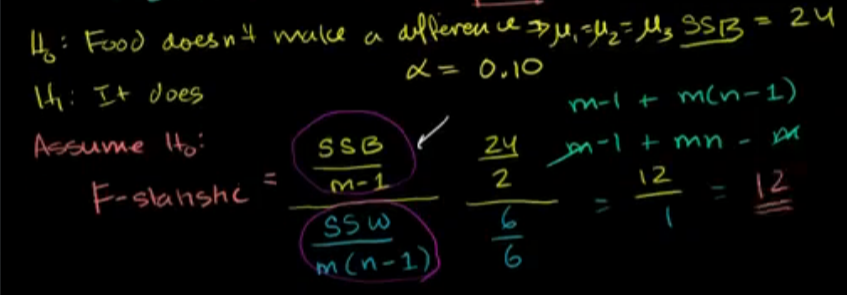 H₀: Food doesn't make a difference ⇒ μ₁=μ₂=μ₃ SSB = 24
H₁: It does
α = 0.10
m-1 + m(n-1)
m-1 + mn - m
Assume H₀:
F-statistic = (SSB/(m-1))/(SSW/(m(n-1))) (24/2)/(6/6) = 12/1 = 12